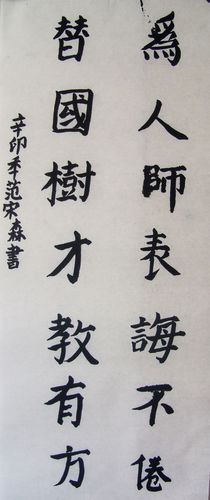 爲人師表誨不倦
替國樹才教有方
辛卯季范宋森書